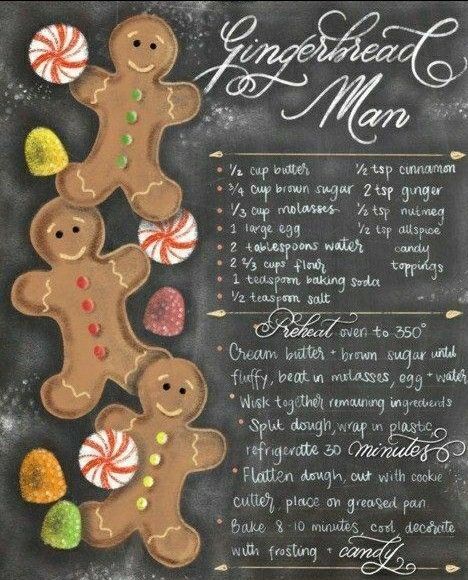 Gingerbread
Man
½ cup butter ½ tsp cinnamon
¾ cup brown sugar 2 tsp ginger
⅓ cup molasses ½ tsp nutmeg
1 large egg ½ tsp allspice
2 tablespoons water candy
2 ⅔ cups flour toppings
1 teaspoon baking soda
½ teaspoon salt
Preheat oven to 350°
Cream butter + brown sugar until
fluffy, beat in molasses, egg + water
Wisk together remaining ingredients
Split dough, wrap in plastic,
refrigerate 30 minutes
Flatten dough, cut with cookie
cutter, place on greased pan
Bake 8-10 minutes, cool, decorate
with frosting + candy